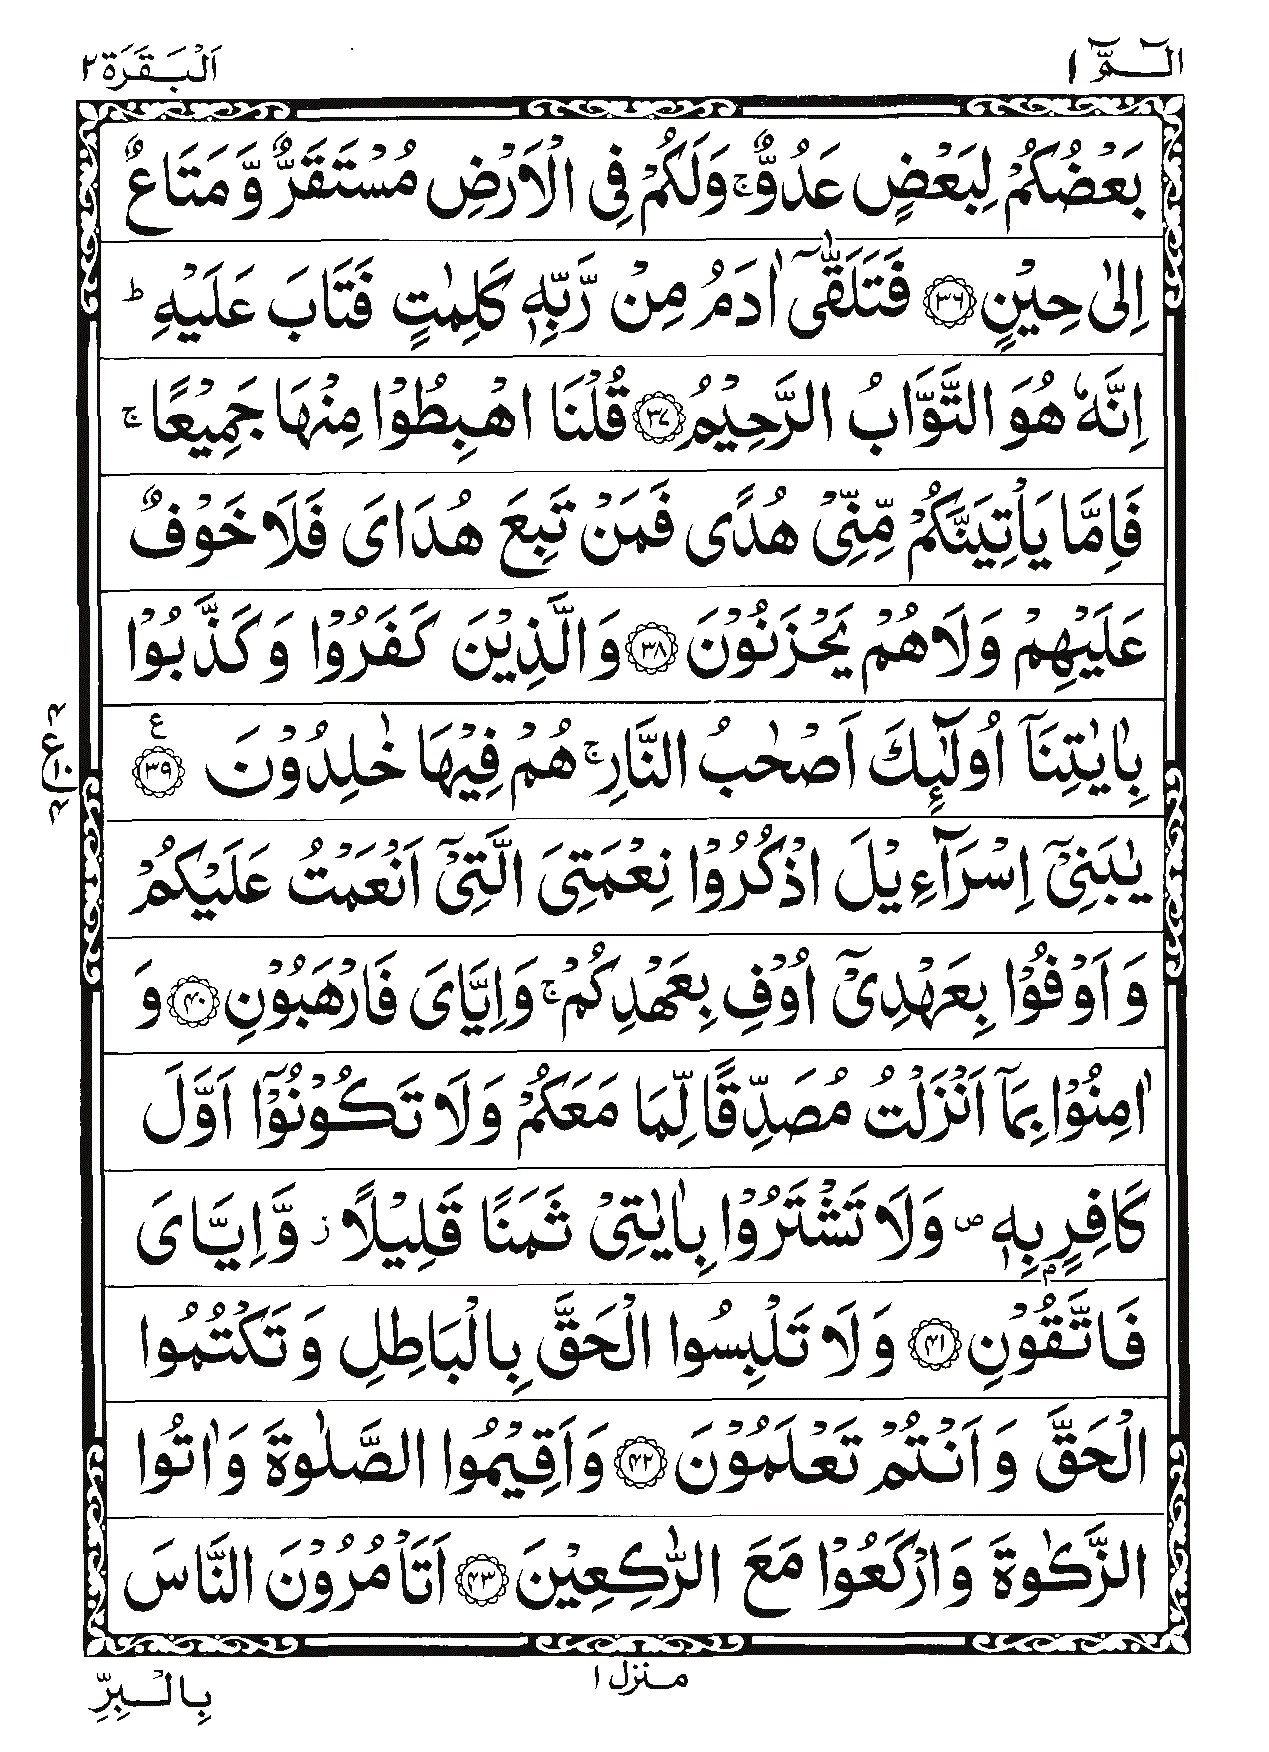 الٓـمّٓ ١ اَلْبَقَرَة ٢
بَعْضُكُمْ لِبَعْضٍ عَدُوٌّ ۚ وَلَكُمْ فِی الْاَرْضِ مُسْتَقَرٌّ وَّ مَتَاعٌ
اِلٰی حِیْنٍ ﴿۳۶﴾ فَتَلَقّٰۤی اٰدَمُ مِنْ رَّبِّهٖ كَلِمٰتٍ فَتَابَ عَلَیْهِ ؕ
اِنَّهٗ هُوَ التَّوَّابُ الرَّحِیْمُ ﴿۳۷﴾ قُلْنَا اهْبِطُوْا مِنْهَا جَمِیْعًا ۚ
فَاِمَّا یَاْتِیَنَّكُمْ مِّنِّیْ هُدًی فَمَنْ تَبِعَ هُدَایَ فَلَا خَوْفٌ
عَلَیْهِمْ وَلَا هُمْ یَحْزَنُوْنَ ﴿۳۸﴾ وَالَّذِیْنَ كَفَرُوْا وَ كَذَّبُوْا
بِاٰیٰتِنَاۤ اُولٰٓىِٕكَ اَصْحٰبُ النَّارِ ۚ هُمْ فِیْهَا خٰلِدُوْنَ ﴿۳۹﴾ ع
٤ ع ١٠ ٤
یٰبَنِیْۤ اِسْرَآءِیْلَ اذْكُرُوْا نِعْمَتِیَ الَّتِیْۤ اَنْعَمْتُ عَلَیْكُمْ
وَ اَوْفُوْا بِعَهْدِیْۤ اُوْفِ بِعَهْدِكُمْ ۚ وَاِیَّایَ فَارْهَبُوْنِ ﴿۴۰﴾ وَ
اٰمِنُوْا بِمَاۤ اَنْزَلْتُ مُصَدِّقًا لِّمَا مَعَكُمْ وَلَا تَكُوْنُوْۤا اَوَّلَ
كَافِرٍۭ بِهٖ ۪ وَلَا تَشْتَرُوْا بِاٰیٰتِیْ ثَمَنًا قَلِیْلًا ؗ وَّاِیَّایَ
فَاتَّقُوْنِ ﴿۴۱﴾ وَلَا تَلْبِسُوا الْحَقَّ بِالْبَاطِلِ وَ تَكْتُمُوا
الْحَقَّ وَ اَنْتُمْ تَعْلَمُوْنَ ﴿۴۲﴾ وَاَقِیْمُوا الصَّلٰوةَ وَ اٰتُوا
الزَّكٰوةَ وَارْكَعُوْا مَعَ الرّٰكِعِیْنَ ﴿۴۳﴾ اَتَاْمُرُوْنَ النَّاسَ
منزل ١
بِالْبِرِّ